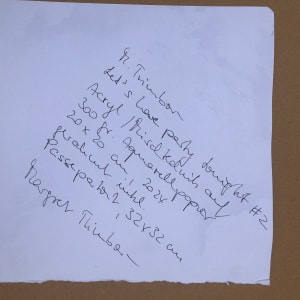 M. Thimbon
Let's have party tonight #2
Acryl / Mischtechnik auf
300 gr. Aquarellpapier
20 x 20 cm, 2024
gerahmt inkl.
Passepartout, 32x32 cm
Margret Thimbon